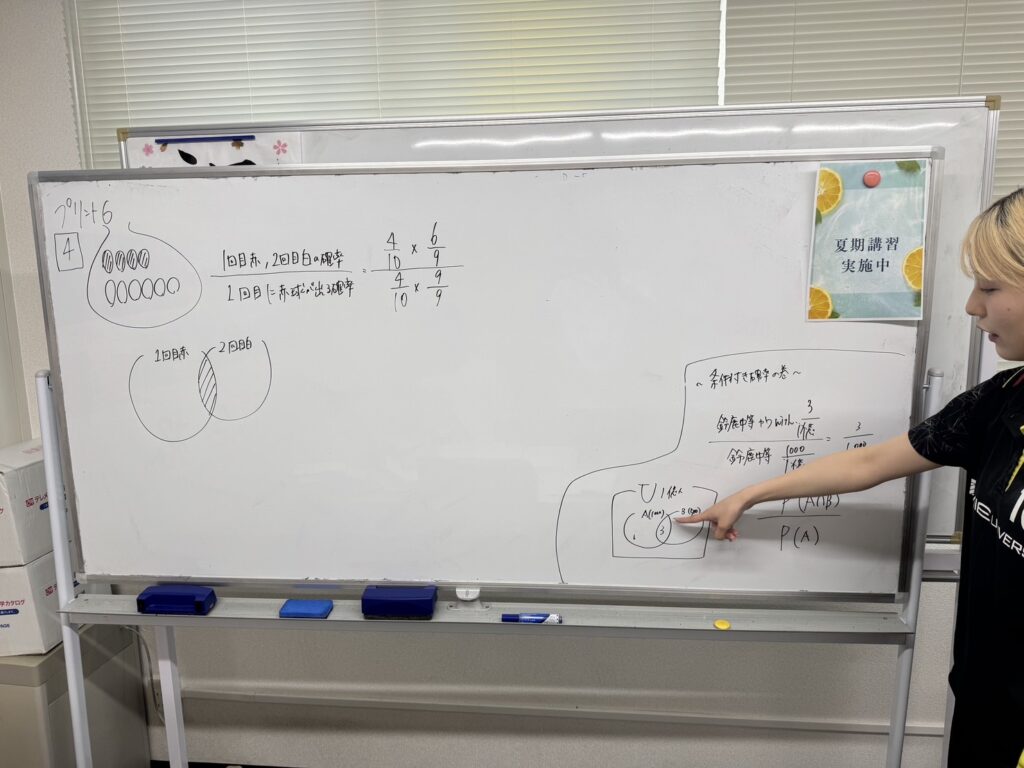 プリント6
4
1回目赤, 2回目白の確率
1回目に赤球が出る確率
= 4/10 × 6/9
4/10 × 9/9
1回目赤
2回目白
夏期講習
実施中
~ 条件付き確率の巻 ~
鈴鹿中等 かつ with 3/1億
鈴鹿中等 1000/1億
= 3/1000
U 1億人
A(1000)
B
3
P(A∩B)
P(A)